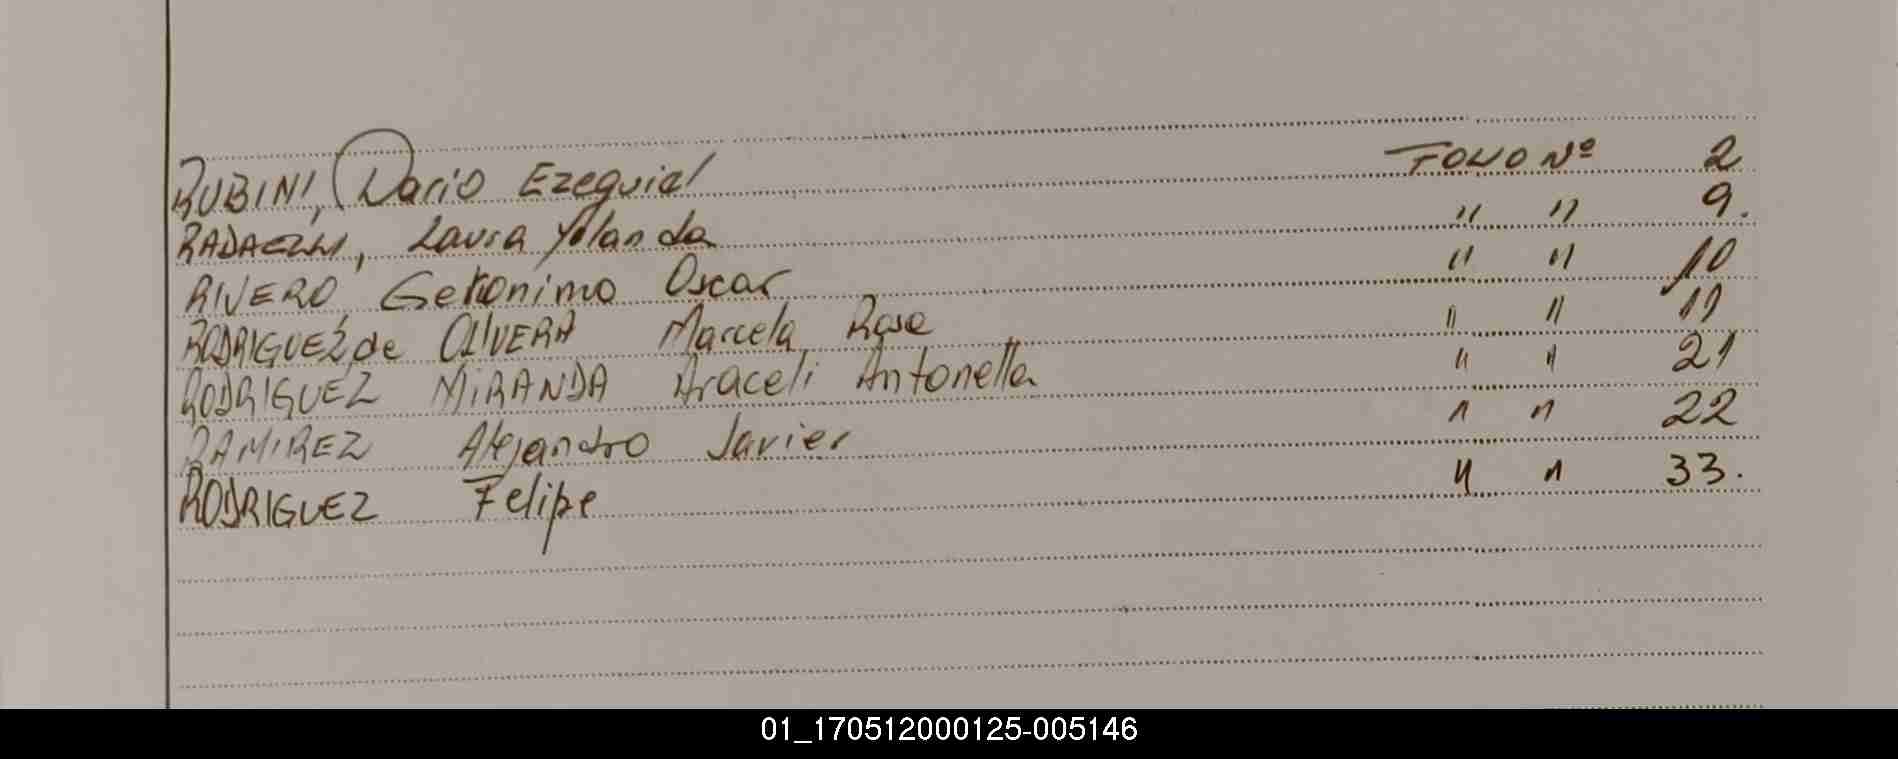 RUBINI, Dario Ezequiel FOLIO Nº 2
RADAELLI, Laura Yolanda " " 9.
RIVERO, Geronimo Oscar " " 10
RODRIGUEZ de OLIVERA Marcela Rosa " " 11
RODRIGUEZ MIRANDA Araceli Antonella " " 21
RAMIREZ Alejandro Javier " " 22
RODRIGUEZ Felipe " " 33.
01_170512000125-005146